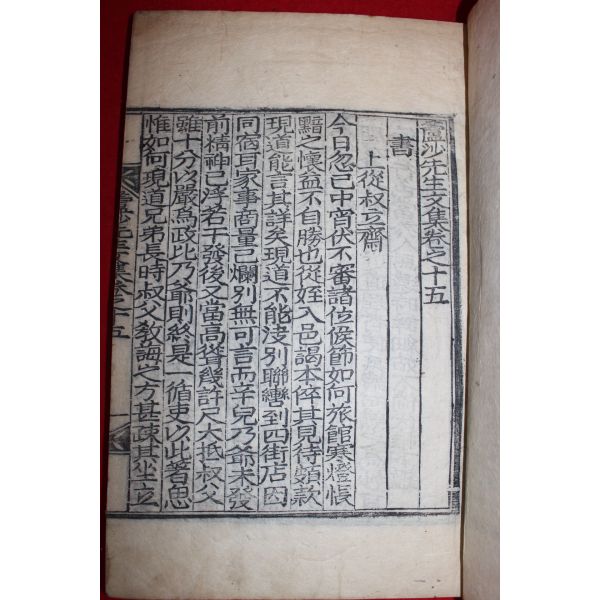 蘆沙先生文集卷之十五
書
上從叔立齋
今日忽已中宵伏不審諸位候節如何旅館寒燈悵
黯之懷益不自勝也從姪入邑謁本倅其見待頗款
現道能言其詳矣現道不能沒別聯轡到四街店因
同宿耳家事商量已爛別無可言而辛兒乃爺未發
前精神已淂若干發後又當高聳幾許尺大抵叔父
雖十分以嚴爲政比乃爺則終是一循吏以此著思
惟如何現道兄弟長時叔父敎誨之方甚疎其坐立